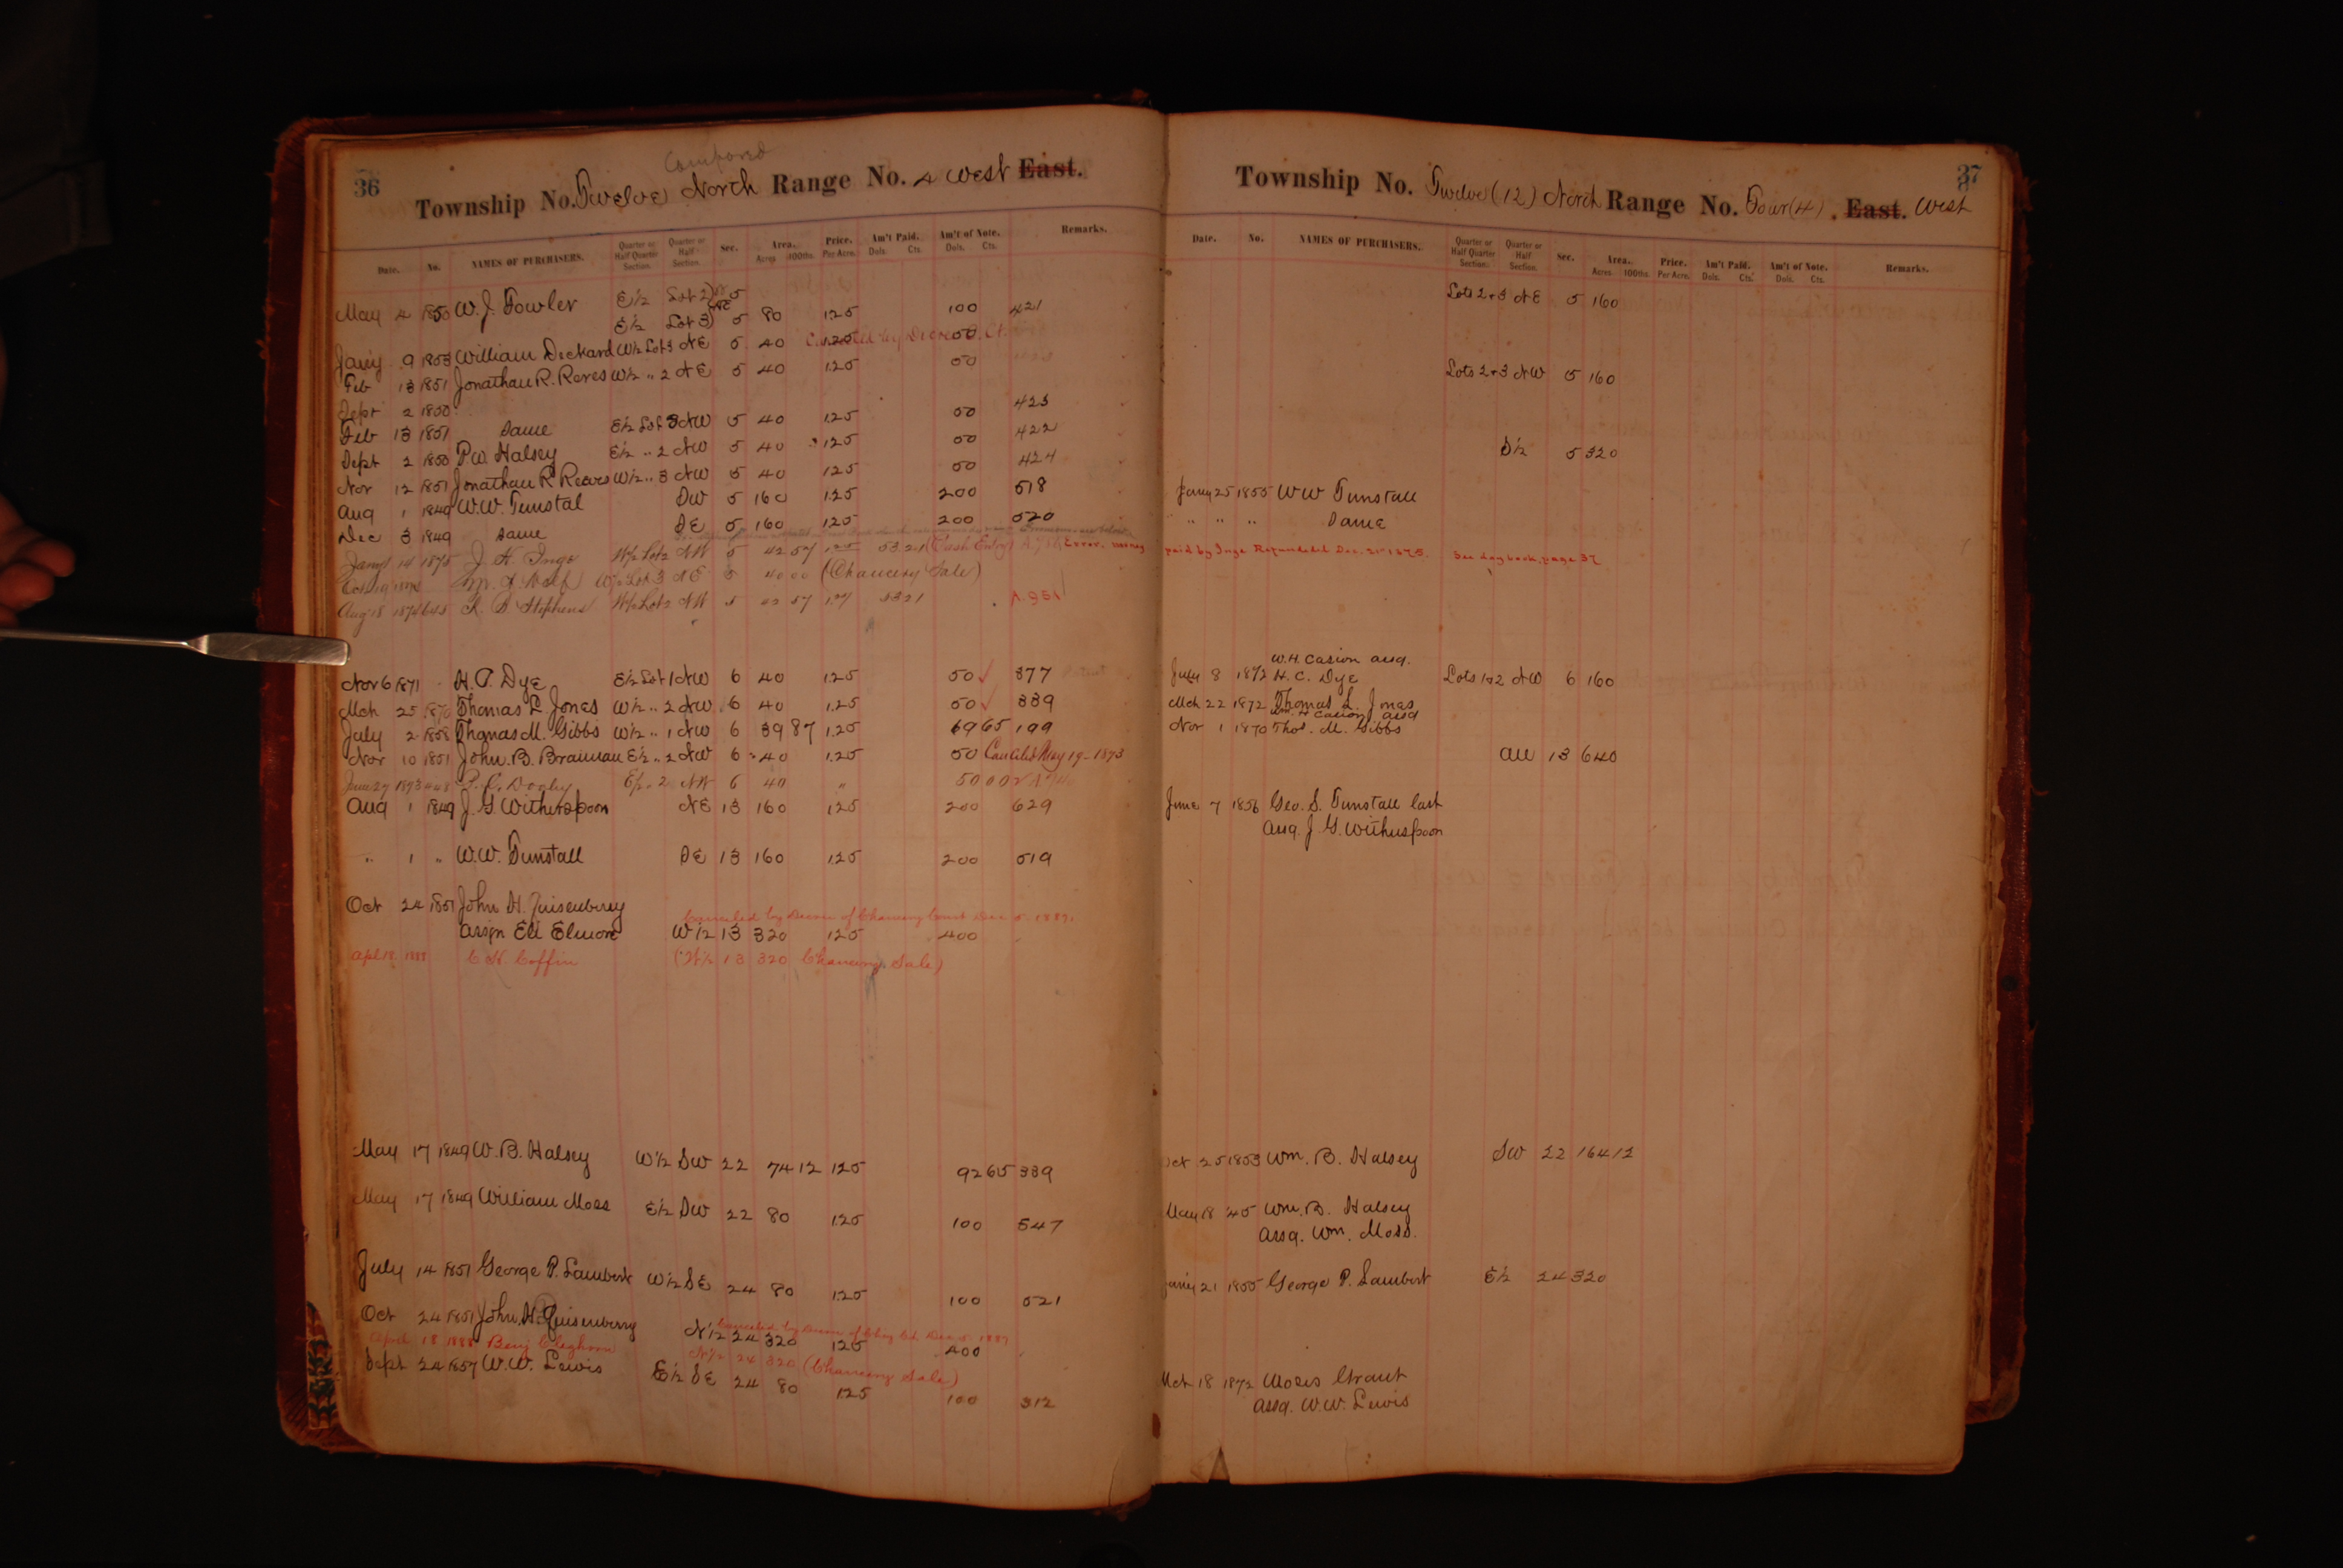 36
Compared
Township No. Twelve North Range No. 4 West East.
Date. No. NAMES OF PURCHASERS. Quarter or Half Quarter Section. Quarter or Half Section. Sec. Area. Acres 100ths. Price. Per Acre. Am't Paid. Dols. Cts. Am't of Note. Dols. Cts. Remarks.
May 4 1850 W. J. Fowler E½ Lot 2 NE 5
E½ Lot 3 5 80 1.25 100 421
Jany 9 1853 William Deckard W½ Lot 3 NE 5 40 1.25 50
Feb 13 1851 Jonathan R. Reves W½ " 2 NE 5 40 1.25 50
Sept 2 1850
Feb 13 1851 Same E½ Lot 3 NW 5 40 1.25 50 423
Sept 2 1850 P.W. Halsey E½ " 2 NW 5 40 1.25 50 422
Nov 12 1851 Jonathan R Reaves W½ " 3 NW 5 40 1.25 50 424
Aug 1 1849 W.W. Tunstal SW 5 160 1.25 200 518
Dec 3 1849 Same SE 5 160 1.25 200 520
Jany 14 1875 J. H. Inge W½ Lot 2 NW 5 42 57 1.25 53.21 (Cash Entry) Error. money
W½ Lot 3 NE 5 40 00 (Chancery Sale)
Aug 18 R. B Stephens W½ Lot 2 NW 5 42 57 53 21 A. 951
Nov 6 1871 H. C. Dye E½ Lot 1 NW 6 40 1.25 50 377
Mch 25 1870 Thomas L. Jones W½ " 2 NW 6 40 1.25 50 339
July 2 1858 Thomas M. Gibbs W½ " 1 NW 6 39 87 1.25 49 65 199
Nov 10 1851 John. B. Braiman E½ " 2 NW 6 40 1.25 50 Canceled May 19-1893
June 27 1893 E½ " 2 NW 6 40 " 50 00
Aug 1 1849 J. G Witherspoon NE 13 160 1.25 200 629
" 1 " W.W. Tunstall SE 13 160 1.25 200 519
Oct 24 1851 John H. Quisenberry
Canceled by Decree of Chancery Court Dec 5 1889.
Assgn Eli Elmore W½ 13 320 1.25 400
Apl 18 1888 C H. Coffin (W½ 13 320 Chancery Sale)
May 17 1849 W. B. Halsey W½ SW 22 74 12 1.25 92 65 339
May 17 1849 William Moss E½ SW 22 80 1.25 100 547
July 14 1851 George P. Lambert W½ SE 24 80 1.25 100 521
Oct 24 1851 John. H. Quisenberry N½ 24 320 1.25 400
April 18 1888 Benj Cleghorn N½ 24 320 (Chancery Sale)
Sept 24 1857 W.W. Lewis E½ SE 24 80 1.25 100 312
37
Township No. Twelve (12) North Range No. Four (4). East. West
Date. No. NAMES OF PURCHASERS. Quarter or Half Quarter Section. Quarter or Half Section. Sec. Area. Acres 100ths. Price. Per Acre. Am't Paid. Dols. Cts. Am't of Note. Dols. Cts. Remarks.
Lots 2 & 3 NE 5 160
Lots 2 & 3 NW 5 160
S½ 5 320
Jany 25 1855 W W Tunstall
" " " Same
paid by Inge Refunded Dec. 21st 1875. See day book, page 37
W.H. Casion asg.
July 8 1872 H. C. Dye Lots 1&2 NW 6 160
Mch 22 1872 Thomas L. Jones
Wm. H Casion asg
Nov 1 1870 Thos. M. Gibbs
All 13 640
June 7 1856 Geo. S. Tunstall last
Assg. J. G. Witherspoon
Oct 25 1853 Wm. B. Halsey SW 22 164 12
May 18 45 Wm. B. Halsey
Assg. Wm. Moss.
21 1855 George P. Lambert E½ 24 320
Oct 18 1872 Moses Grant
Assg. W.W. Lewis